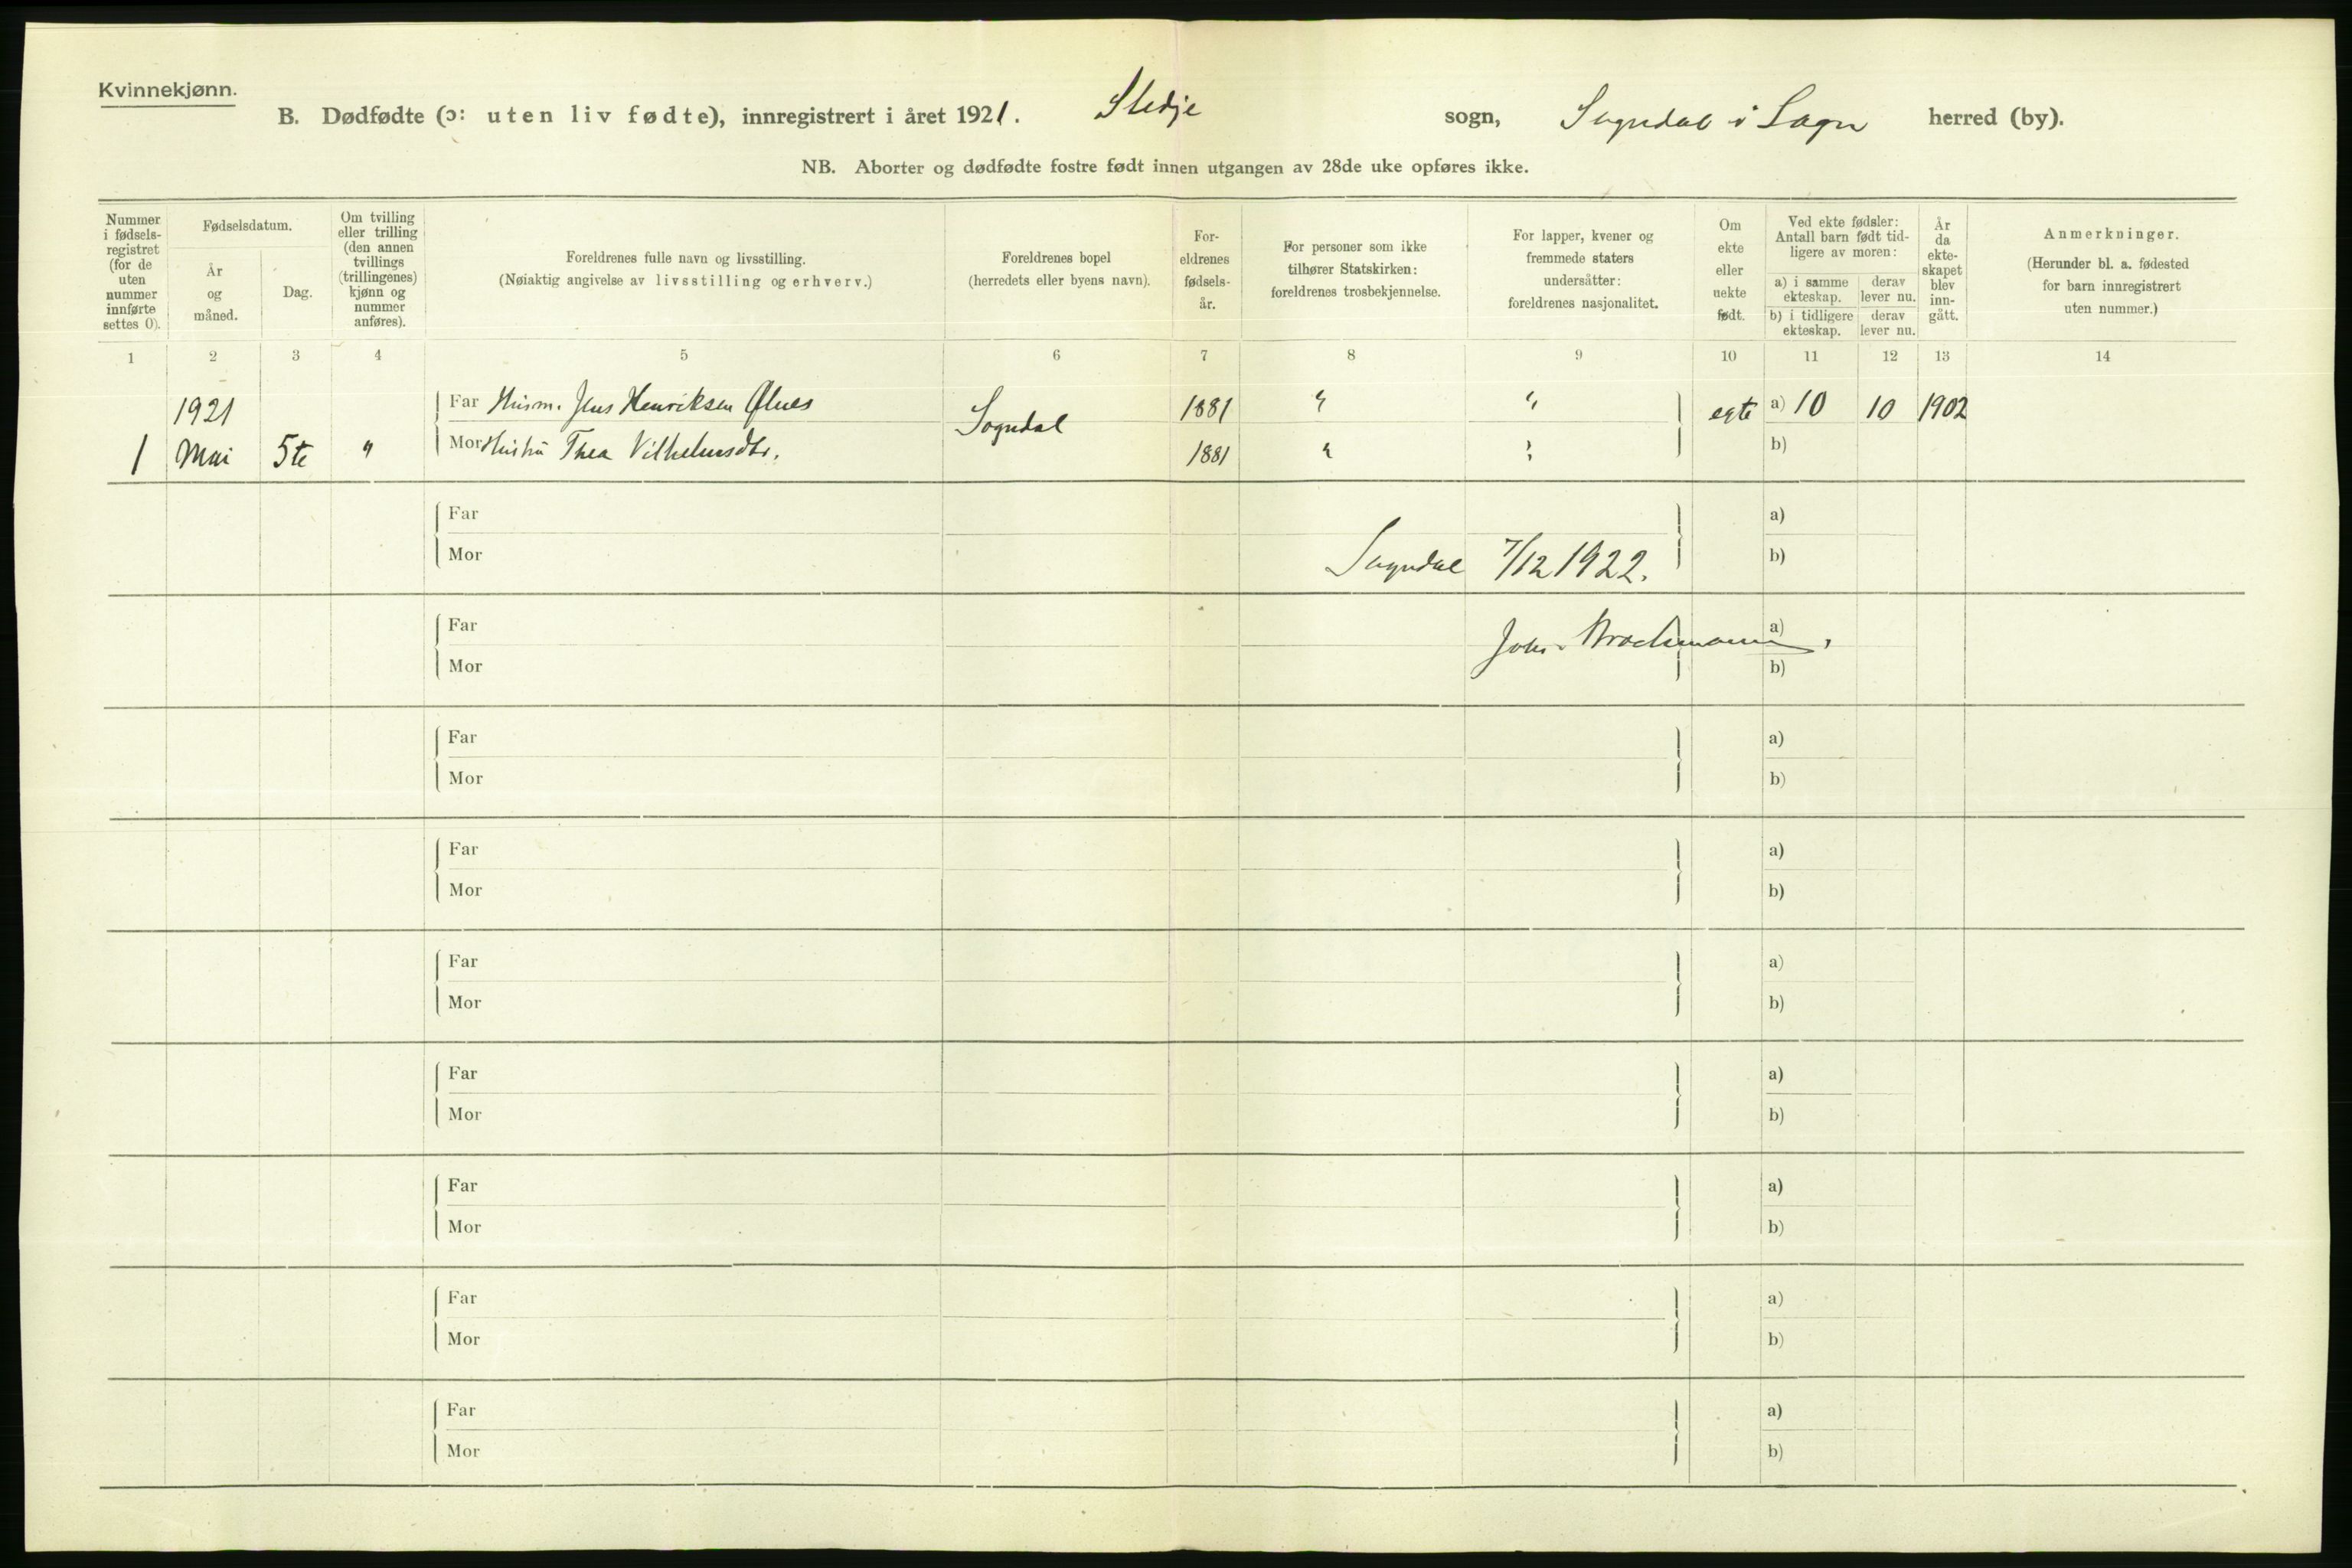 Kvinnekjønn.
B. Dødfødte (ɔ: uten liv fødte), innregistrert i året 1921. Stedje sogn, Sogndal i Sogn herred (by).
NB. Aborter og dødfødte fostre født innen utgangen av 28de uke opføres ikke.
Nummer i fødsels-registret (for de uten nummer innførte settes 0).
Fødselsdatum.
År og måned.
Dag.
Om tvilling eller trilling (den annen tvillings (trillingenes) kjønn og nummer anføres).
Foreldrenes fulle navn og livsstilling.
(Nøiaktig angivelse av livsstilling og erhverv.)
Foreldrenes bopel
(herredets eller byens navn).
For-eldrenes fødsels-år.
For personer som ikke tilhører Statskirken: foreldrenes trosbekjennelse.
For lapper, kvener og fremmede staters undersåtter: foreldrenes nasjonalitet.
Om ekte eller uekte født.
Ved ekte fødsler: Antall barn født tid-ligere av moren:
a) i samme ekteskap.
derav lever nu.
b) i tidligere ekteskap.
derav lever nu.
År da ekte-skapet blev inn-gått.
Anmerkninger.
(Herunder bl. a. fødested for barn innregistrert uten nummer.)
1 2 3 4 5 6 7 8 9 10 11 12 13 14
1921 Far Husm. Jens Henriksen Ølnes Sogndal 1881 " " egte a) 10 10 1902
1 Mai 5te " Mor Hustru Thea Vilhelmsdtr. 1881 " " b)
Far a)
Mor Sogndal 7/12 1922. b)
Far Joh. Brochmann. a)
Mor b)
Far a)
Mor b)
Far a)
Mor b)
Far a)
Mor b)
Far a)
Mor b)
Far a)
Mor b)
Far a)
Mor b)
Far a)
Mor b)